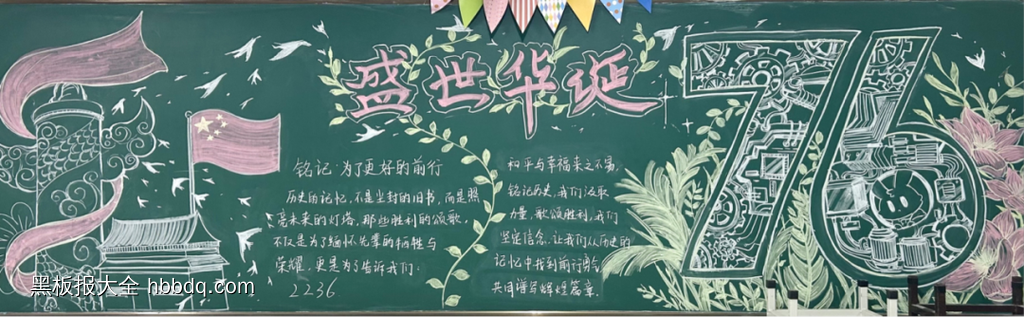 盛世华诞
76
铭记 为了更好的前行
历史的记忆,不是尘封的旧书,而是照
亮未来的灯塔,那些胜利的颂歌,
不仅是为了缅怀先辈的牺牲与
荣耀,更是为了告诉我们:
2236
和平与幸福来之不易,
铭记历史,我们汲取
力量,歌颂胜利,我们
坚定信念,让我们从历史的
记忆中找到前行
共同谱写辉煌篇章.
黑板报大全 hbbdq.com